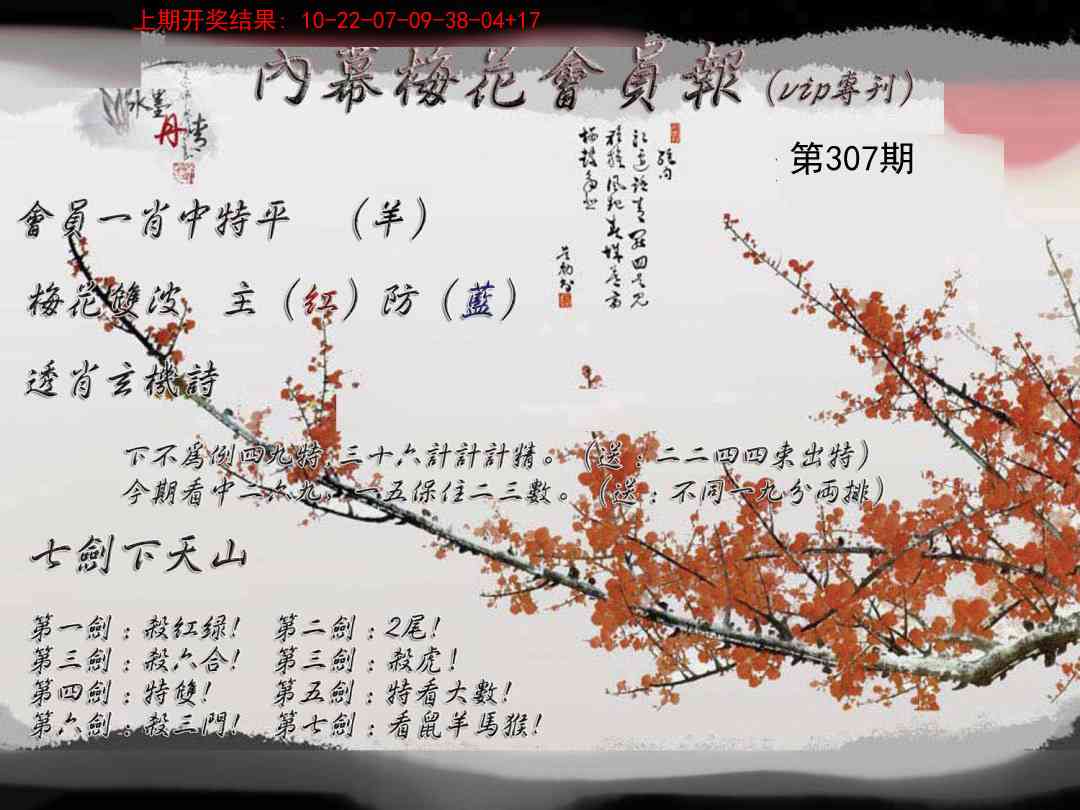 上期开奖结果: 10-22-07-09-38-04+17
內幕梅花會員報(vip專刊)
水墨丹青
第307期
會員一肖中特平 (羊)
梅花雙波 主(紅)防(藍)
透肖玄機詩
下不為例四九特,三十六計計計精。(送:二二四四東出特)
今期看中二六九,一五保住二三數。(送:不同一九分両排)
七劍下天山
第一劍:殺紅绿! 第二劍:2尾!
第三劍:殺六合! 第三劍:殺虎!
第四劍:特雙! 第五劍:特看大數!
第六劍:殺三門! 第七劍:看鼠羊馬猴!